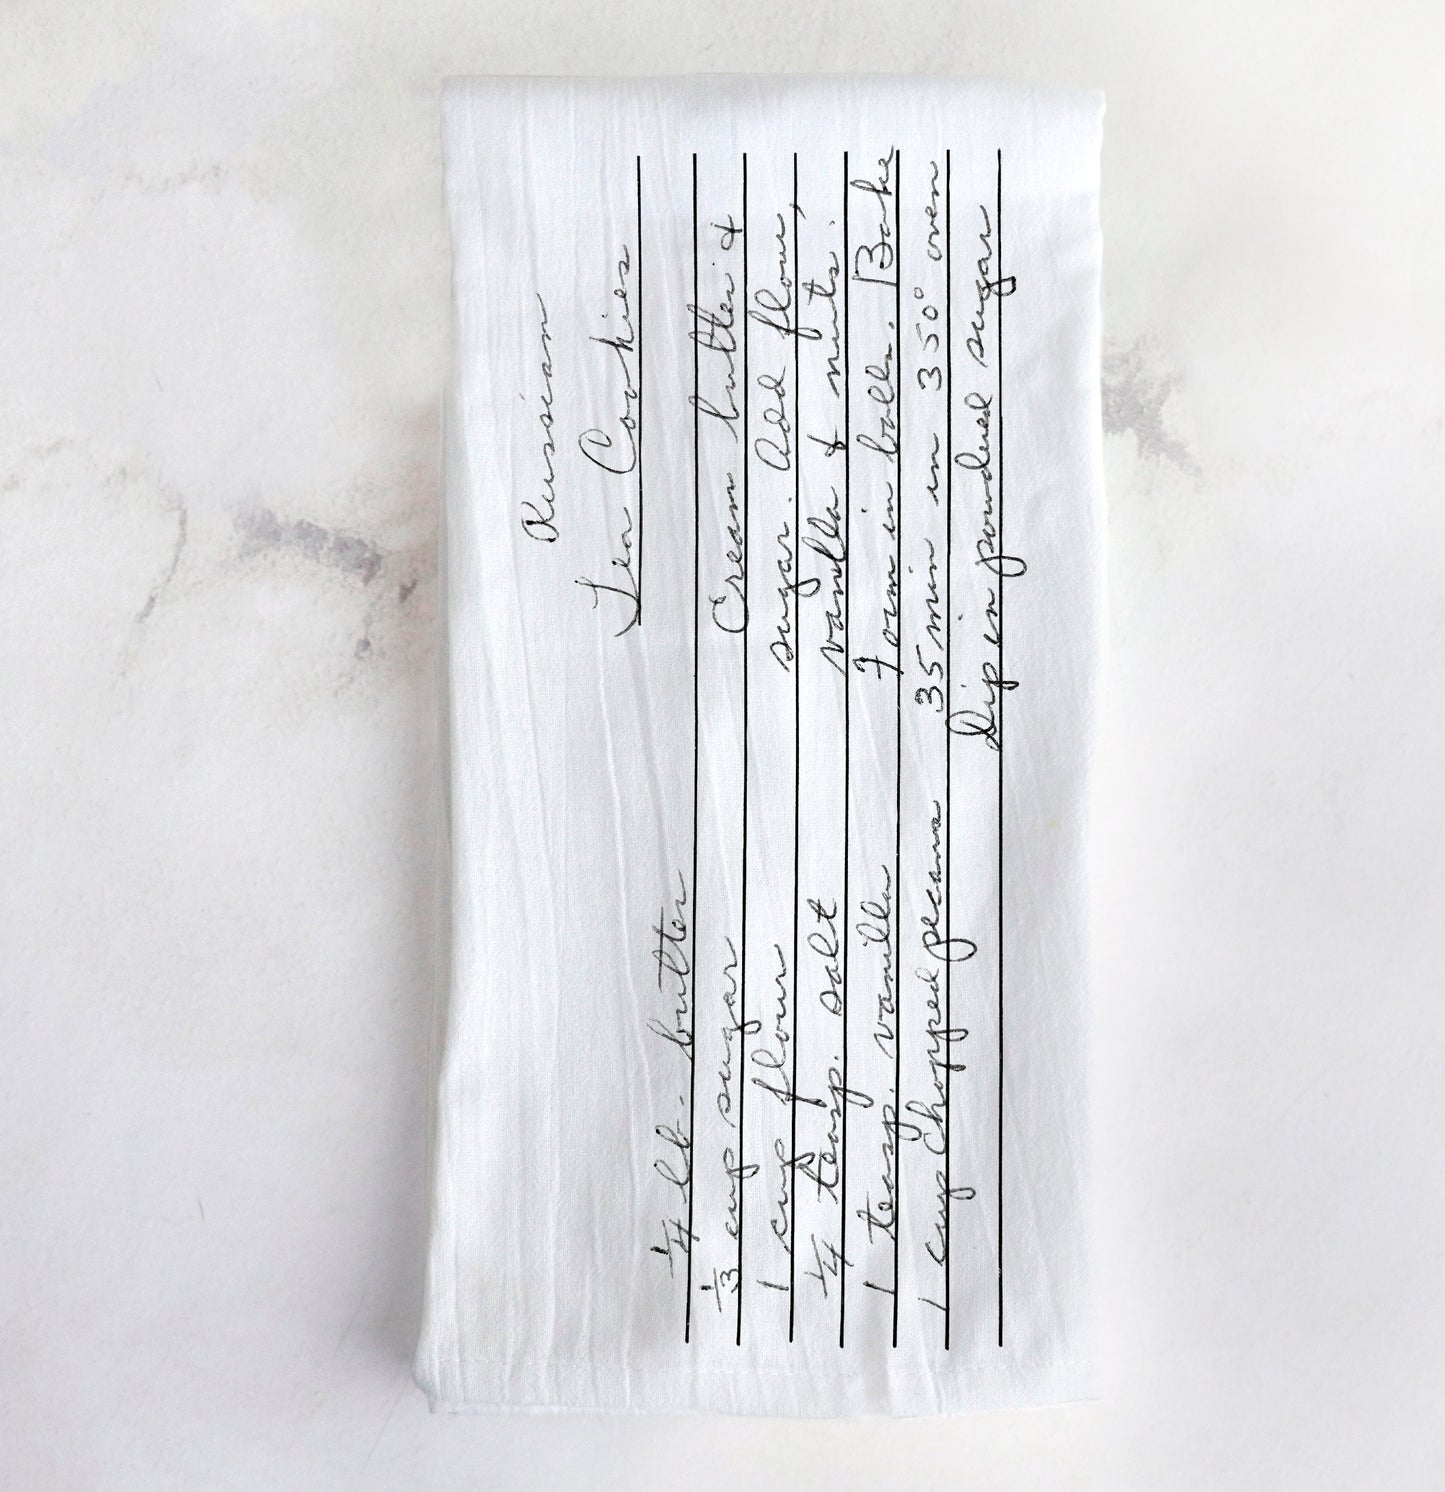 Russian
Tea Cookies
1/4 lb. butter
1/3 cup sugar
1 cup flour
1/4 teasp. salt
1 teasp. vanilla
1 cup chopped pecans
Cream butter &
sugar. Add flour,
vanilla & nuts.
Form in balls. Bake
35 min in 350° oven
Dip in powdered sugar